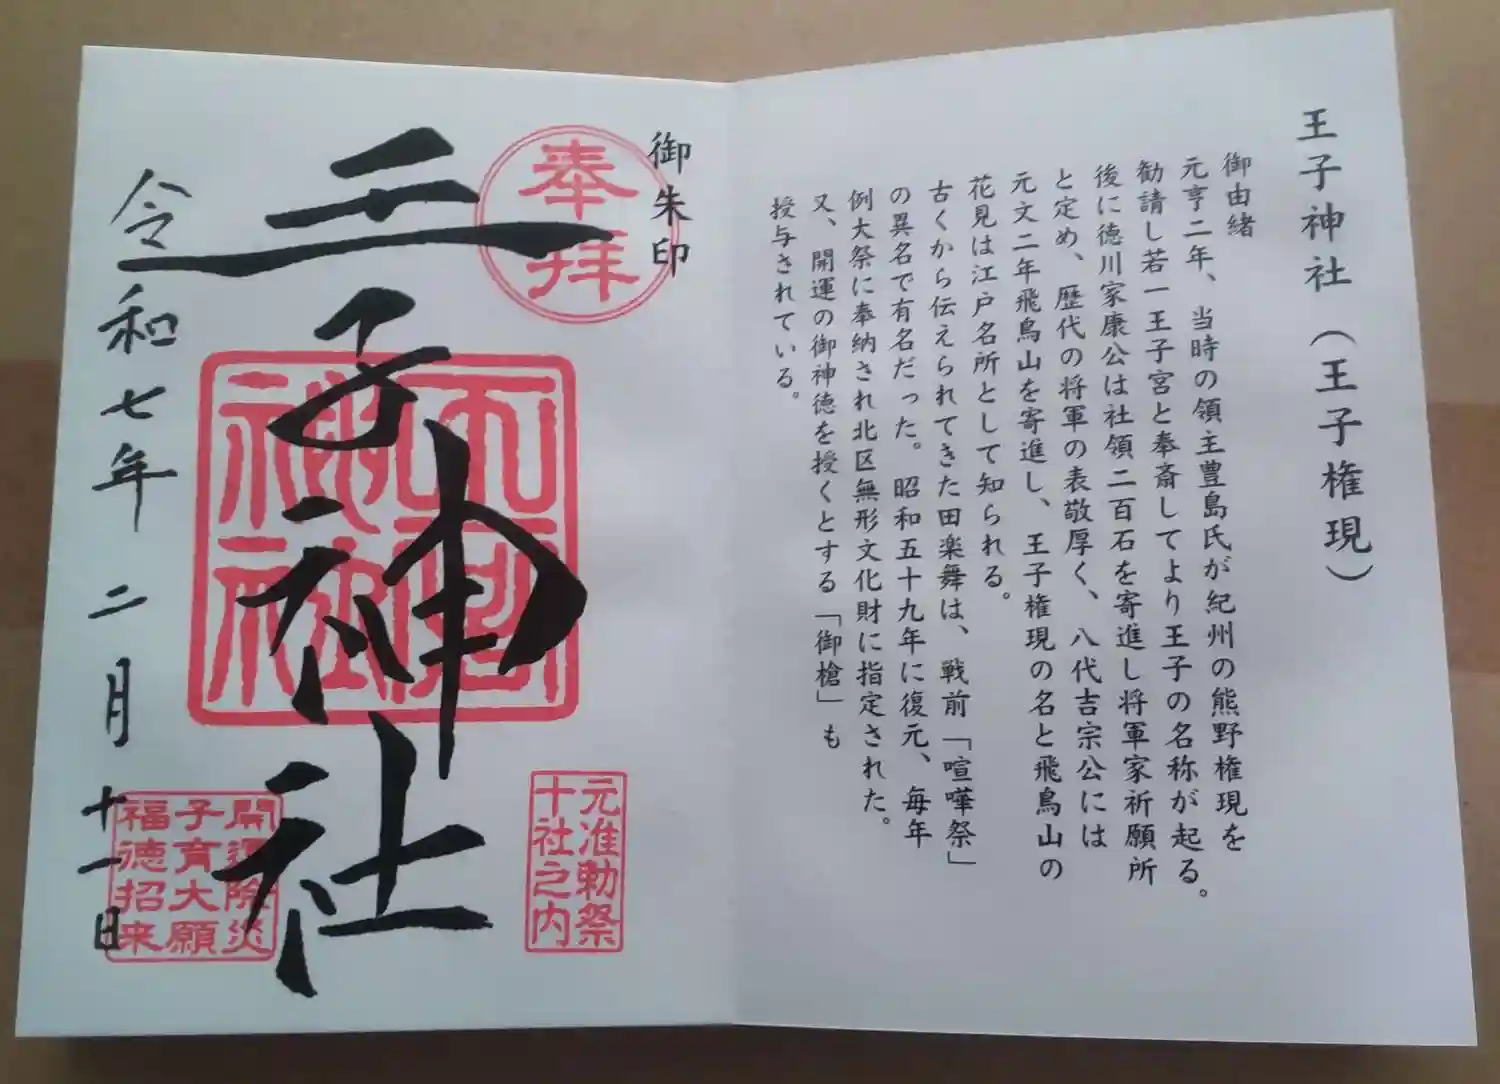 王子神社（王子権現）
御由緒
元亨二年、当時の領主豊島氏が紀州の熊野権現を
勧請し若一王子宮と奉斎してより王子の名称が起る。
後に徳川家康公は社領二百石を寄進し将軍家祈願所
と定め、歴代の将軍の表敬厚く、八代吉宗公には
元文二年飛鳥山を寄進し、王子権現の名と飛鳥山の
花見は江戸名所として知られる。
古くから伝えられてきた田楽舞は、戦前「喧嘩祭」
の異名で有名だった。昭和五十九年に復元、毎年
例大祭に奉納され北区無形文化財に指定された。
又、開運の御神徳を授くとする「御槍」も
授与されている。
御朱印
奉拝
王子神社
元准勅祭
十社之内
令和七年二月十一日
開運除災
子育大願
福徳招来